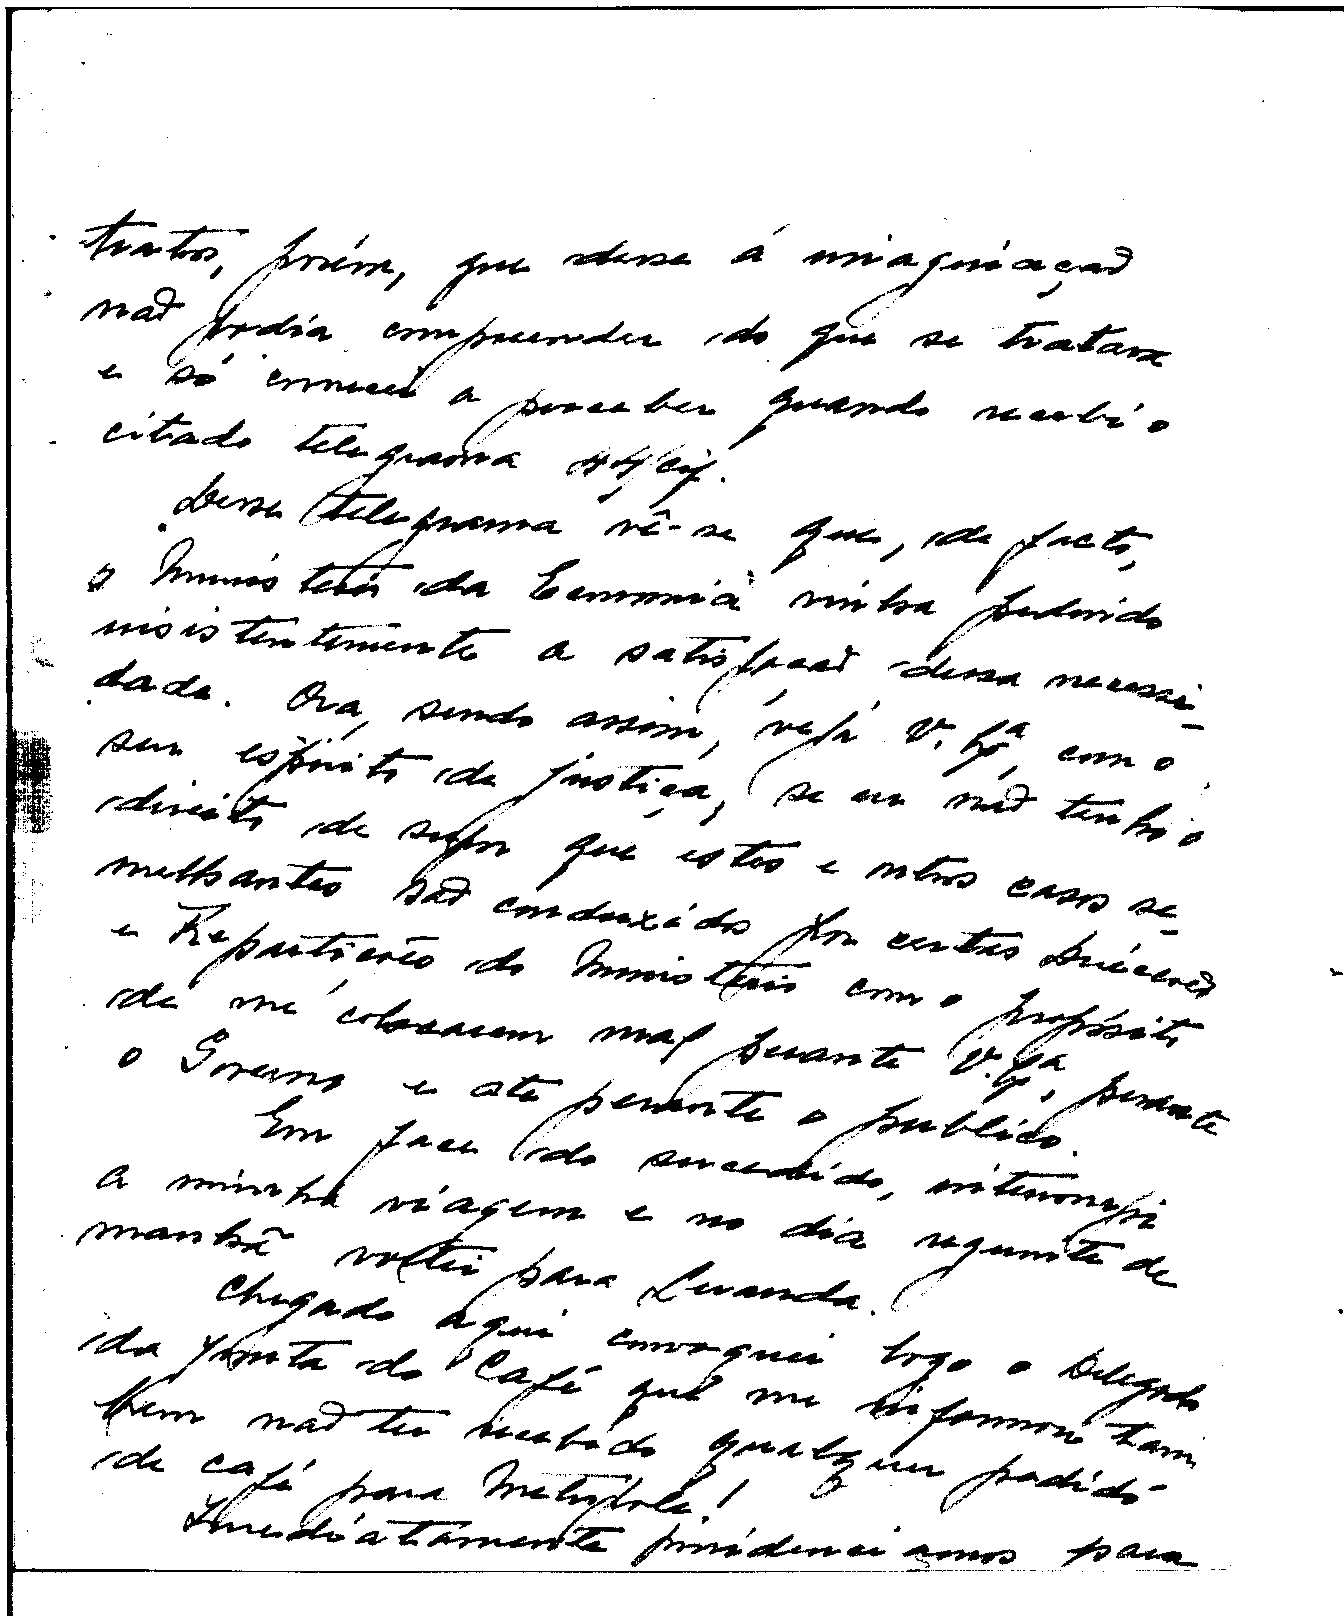 tratos, porém, que désse á imaginação
não podia compreender do que se tratava
e só comecei a perceber quando recebi o
citado telegrama 44/cif.
Desse telegrama vê-se que, de facto,
o Ministério da Economia vinha pedindo
insistentemente a satisfação dessa necessi-
dade. Ora, sendo assim, veja V. Exª, com o
seu espírito de justiça, se eu não tenho o
direito de supor que estes e outros casos se-
melhantes são conduzidos por certas Direcções
e Repartições do Ministério com o propósito
de me colocarem mal perante V. Exª, perante
o Governo e até perante o publico.
Em face do sucedido, interrompi
a minha viagem e no dia seguinte de
manhã voltei para Luanda.
Chegado aqui convoquei logo o Delegado
da Junta do Café que me informou tam
bem não ter recebido qualquer pedido
de café para Metrópole!
Imediatamente providenciamos para